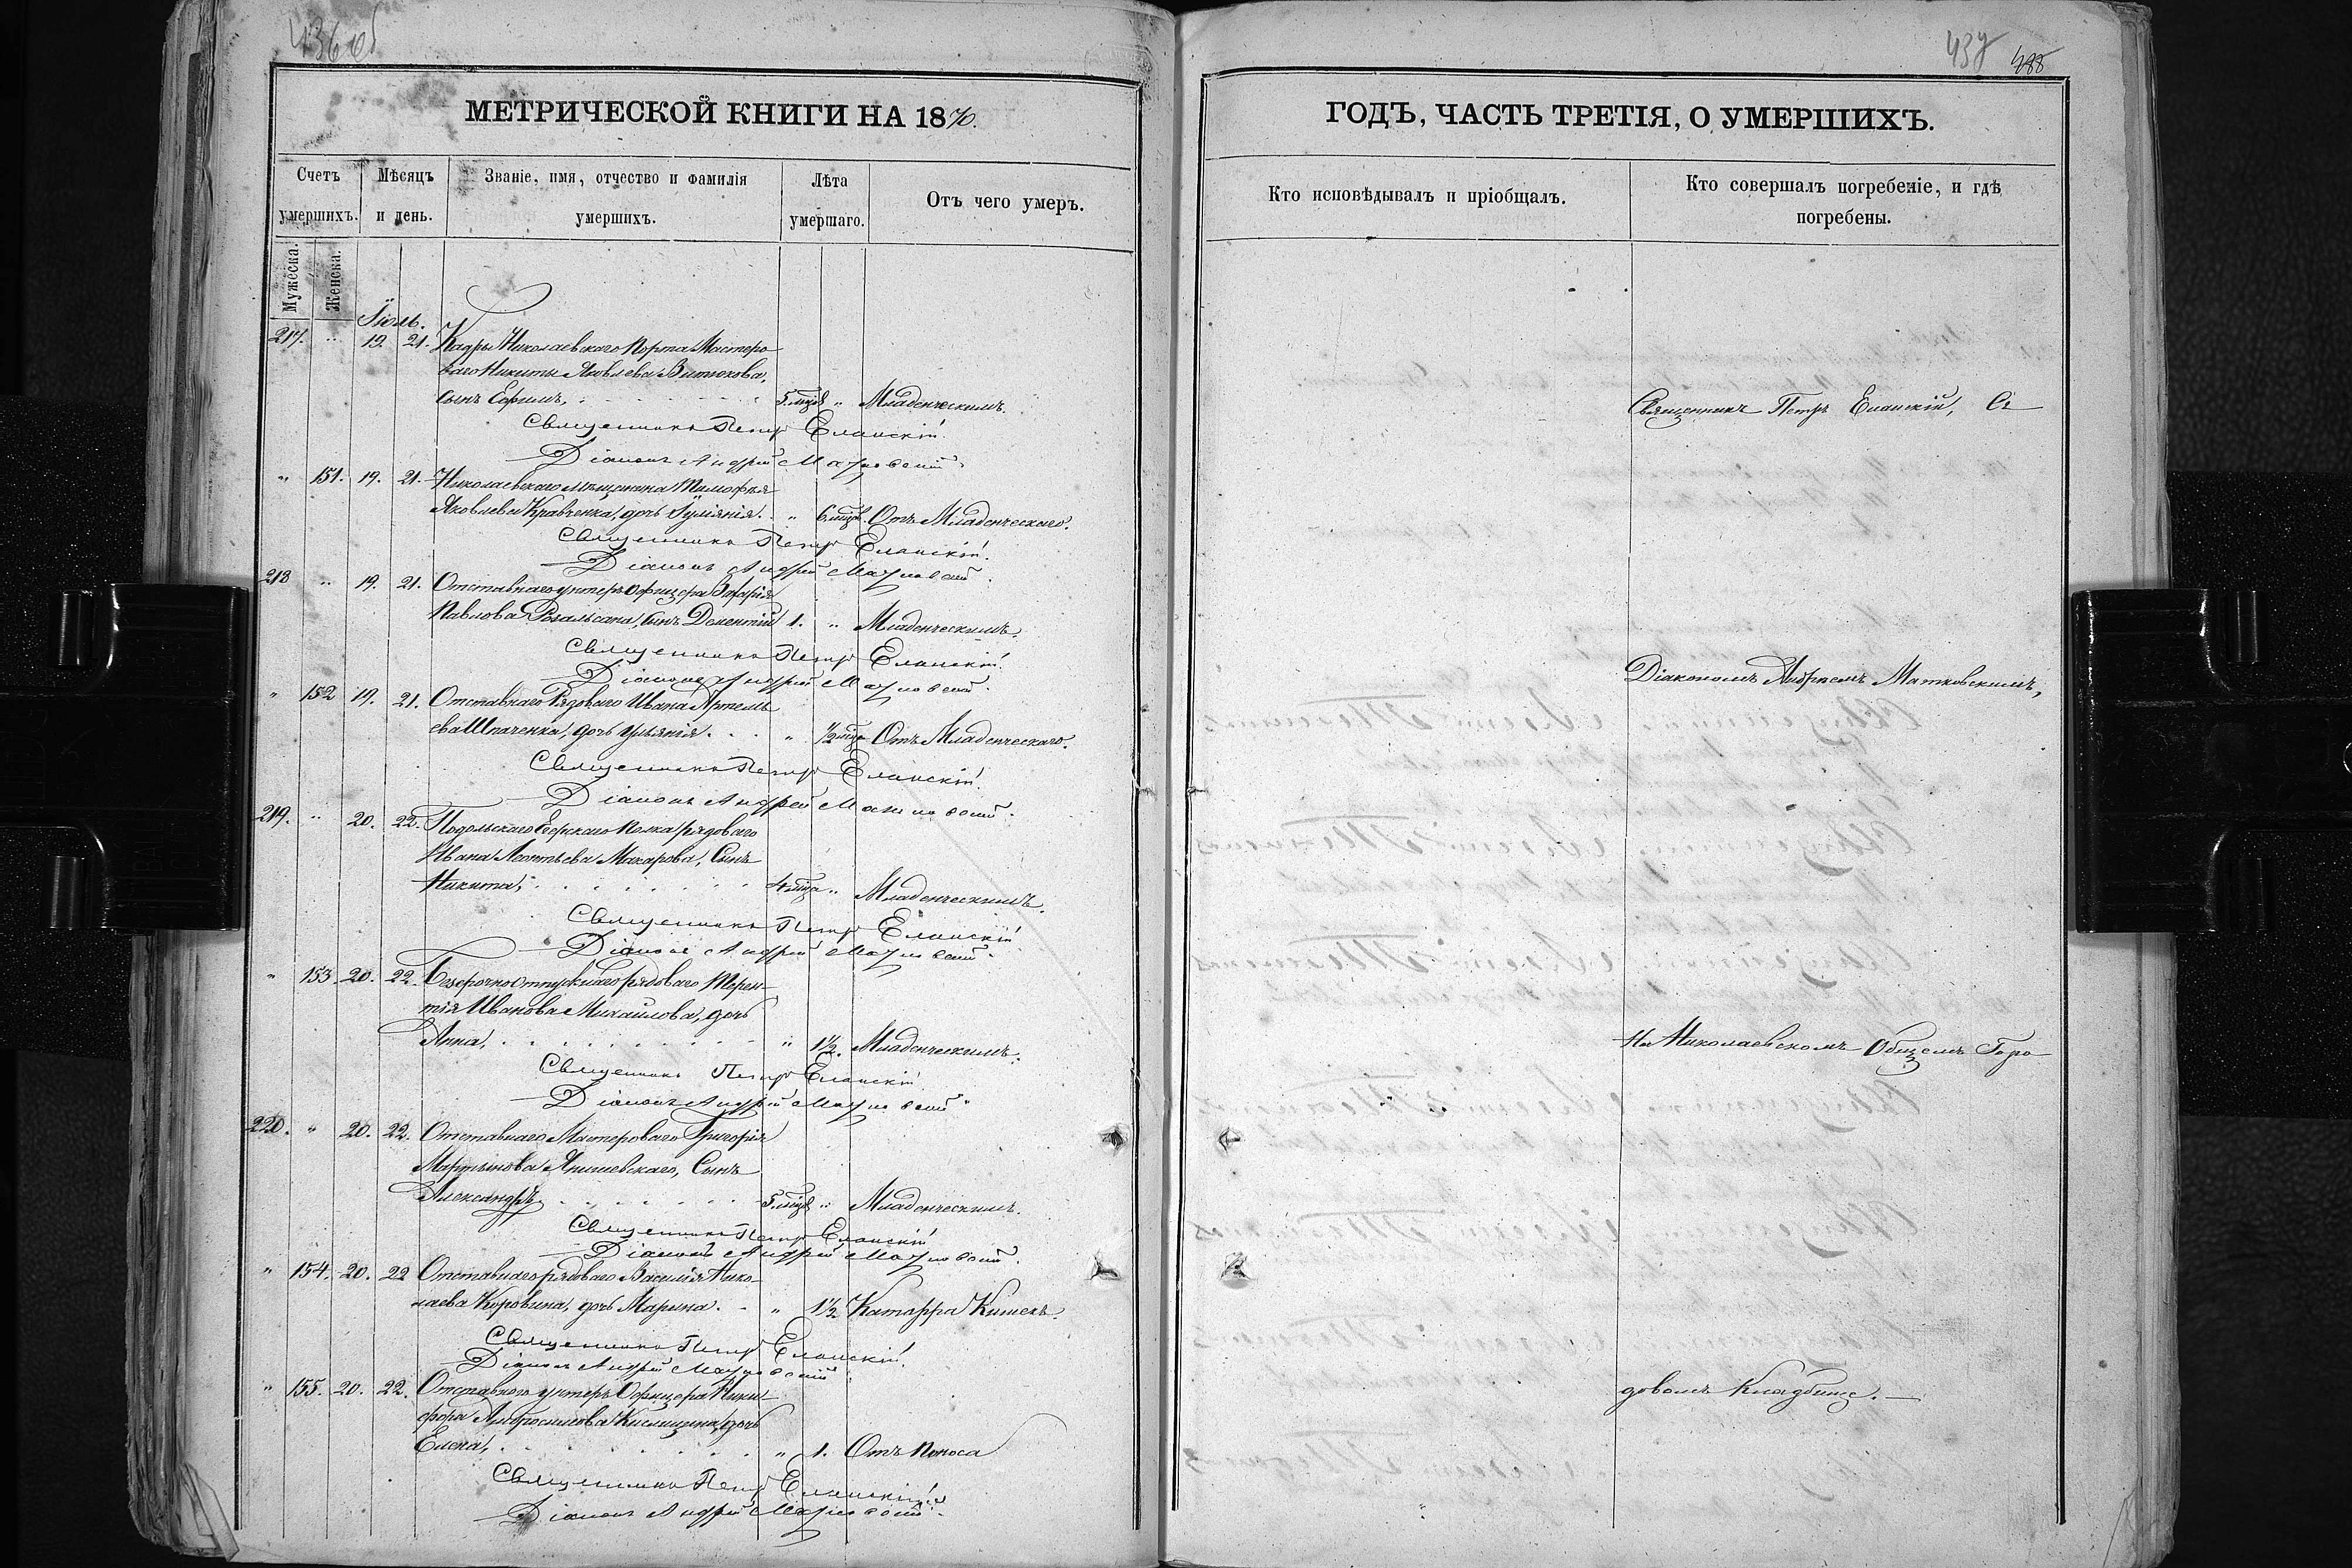 436об
МЕТРИЧЕСКОЙ КНИГИ НА 1870.
Счетъ умершихъ.
Мужеска.
Женска.
Мѣсяцъ и день.
Званіе, имя, отчество и фамилія умершихъ.
Лѣта умершаго.
Отъ чего умеръ.
Іюль.
217. " 19. 21. Кадры Николаевскаго Порта Мастеро-
ваго Никиты Яковлева Витюкова,
сынъ Ефимъ, 5. мцв " Младенческимъ.
Священникъ Петръ Еланскій.
Діаконъ Андрей Матковскій.
" 151. 19. 21. Николаевскаго мѣщанина Тимофея
Яковлева Кравченка, дочь Іуліянія. " 6 мцв. Отъ Младенческаго.
Священникъ Петръ Еланскій.
Діаконъ Андрей Матковскій.
218 " 19. 21. Отставнаго унтеръ Офицера
Павлова сынъ Дементій 1. " Младенческимъ.
Священникъ Петръ Еланскій.
Діаконъ Андрей Матковскій.
" 152 19. 21. Отставнаго Рядоваго Ивана Артемь-
ева Шпаченка, дочь Ульянія. " ½ мца Отъ Младенческаго.
Священникъ Петръ Еланскій.
Діаконъ Андрей Матковскій.
219. " 20. 22. Подольскаго Егерскаго Полка рядоваго
Ивана Леонтьева Макарова, Сынъ
Никита, 4 мца " Младенческимъ.
Священникъ Петръ Еланскій
Діаконъ Андрей Матковскій.
" 153 20. 22. Безсрочноотпускнаго рядоваго Терен-
тія Иванова Михайлова, дочь
Анна, " 1½. Младенческимъ.
Священникъ Петръ Еланскій
Діаконъ Андрей Матковскій
220. " 20. 22. Отставнаго Мастероваго Григорія
Мартынова Янишевскаго, Сынъ
Александръ 5. мцв " Младенческимъ.
Священникъ Петръ Еланскій
Діаконъ Андрей Матковскій.
" 154. 20. 22 Отставнаго рядоваго Василія Нико-
лаева Коровина, дочь Марина. " 1½ Катарра Кишекъ.
Священникъ Петръ Еланскій.
Діаконъ Андрей Матковскій
" 155. 20. 22. Отставнаго унтеръ Офицера Ники-
фора Амбросимова дочь
Елена, " 1. Отъ Поноса
Священникъ Петръ Еланскій
Діаконъ Андрей Матковскій.
437
ГОДЪ, ЧАСТЬ ТРЕТІЯ, О УМЕРШИХЪ.
Кто исповѣдывалъ и пріобщалъ.
Кто совершалъ погребеніе, и гдѣ
погребены.
Священникъ Петръ Еланскій, Съ
Діакономъ Андреемъ Матковскимъ,
На Николаевскомъ Общемъ Горо-
довомъ Кладбище.